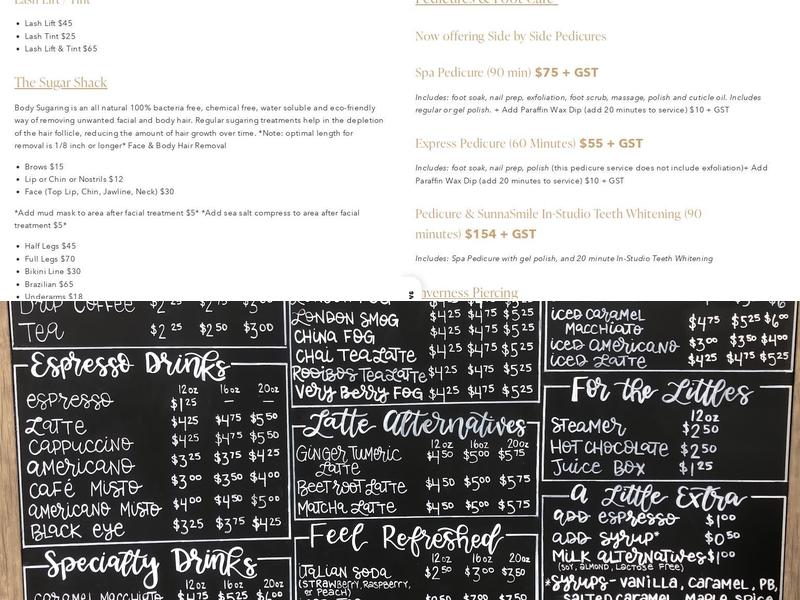 Lash Lift / Tint
Lash Lift $45
Lash Tint $25
Lash Lift & Tint $65
The Sugar Shack
Body Sugaring is an all natural 100% bacteria free, chemical free, water soluble and eco-friendly
way of removing unwanted facial and body hair. Regular sugaring treatments help in the depletion
of the hair follicle, reducing the amount of hair growth over time. *Note: optimal length for
removal is 1/8 inch or longer* Face & Body Hair Removal
Brows $15
Lip or Chin or Nostrils $12
Face (Top Lip, Chin, Jawline, Neck) $30
*Add mud mask to area after facial treatment $5* *Add sea salt compress to area after facial
treatment $5*
Half Legs $45
Full Legs $70
Bikini Line $30
Brazilian $65
Underarms $18
Pedicures & Foot Care
Now offering Side by Side Pedicures
Spa Pedicure (90 min) $75 + GST
Includes: foot soak, nail prep, exfoliation, foot scrub, massage, polish and cuticle oil. Includes
regular or gel polish. + Add Paraffin Wax Dip (add 20 minutes to service) $10 + GST
Express Pedicure (60 Minutes) $55 + GST
Includes: foot soak, nail prep, polish (this pedicure service does not include exfoliation)+ Add
Paraffin Wax Dip (add 20 minutes to service) $10 + GST
Pedicure & SunnaSmile In-Studio Teeth Whitening (90
minutes) $154 + GST
Includes: Spa Pedicure with gel polish, and 20 minute In-Studio Teeth Whitening
Inverness Piercing
Drip Coffee $2 25 $2 75 $3
Tea $2 25 $2 50 $3 00
Espresso Drinks
12oz 16oz 20oz
Espresso $1 25 — —
Latte $4 25 $4 75 $5 50
Cappuccino $4 25 $4 75 $5 50
Americano $3 25 $3 75 $4 25
Café Misto $3 00 $3 50 $4 00
Americano Misto $4 00 $4 50 $5 00
Black Eye $3 25 $3 75 $4 25
Specialty Drinks
12oz 16oz 20oz
Caramel Macchiato $4 75 $5 25 $6 00
London Smog $4 25 $4 75 $5 25
China Fog $4 25 $4 75 $5 25
Chai Tea Latte $4 25 $4 75 $5 25
Rooibos Tea Latte $4 25 $4 75 $5 25
Very Berry Fog $4 25 $4 75 $5 25
Latte Alternatives
12oz 16oz 20oz
Ginger Tumeric $4 50 $5 00 $5 75
Latte
Beetroot Latte $4 50 $5 00 $5 75
Matcha Latte $4 50 $5 00 $5 75
Feel Refreshed
12oz 16oz 20oz
Italian Soda $2 50 $3 00 $3 50
(Strawberry, Raspberry,
or Peach)
Iced Caramel
Macchiato $4 75 $5 25 $6 00
Iced Americano $3 00 $3 50 $4 00
Iced Latte $4 25 $4 75 $5 25
For the Littles
12oz
Steamer $2 50
Hot Chocolate $2 50
Juice Box $1 25
A Little Extra
Add Espresso $1 00
Add Syrup* $0 50
Milk Alternatives $1 00
(Soy, Almond, Lactose Free)
*Syrups - Vanilla, Caramel, PB,
Salted Caramel, Maple Spice